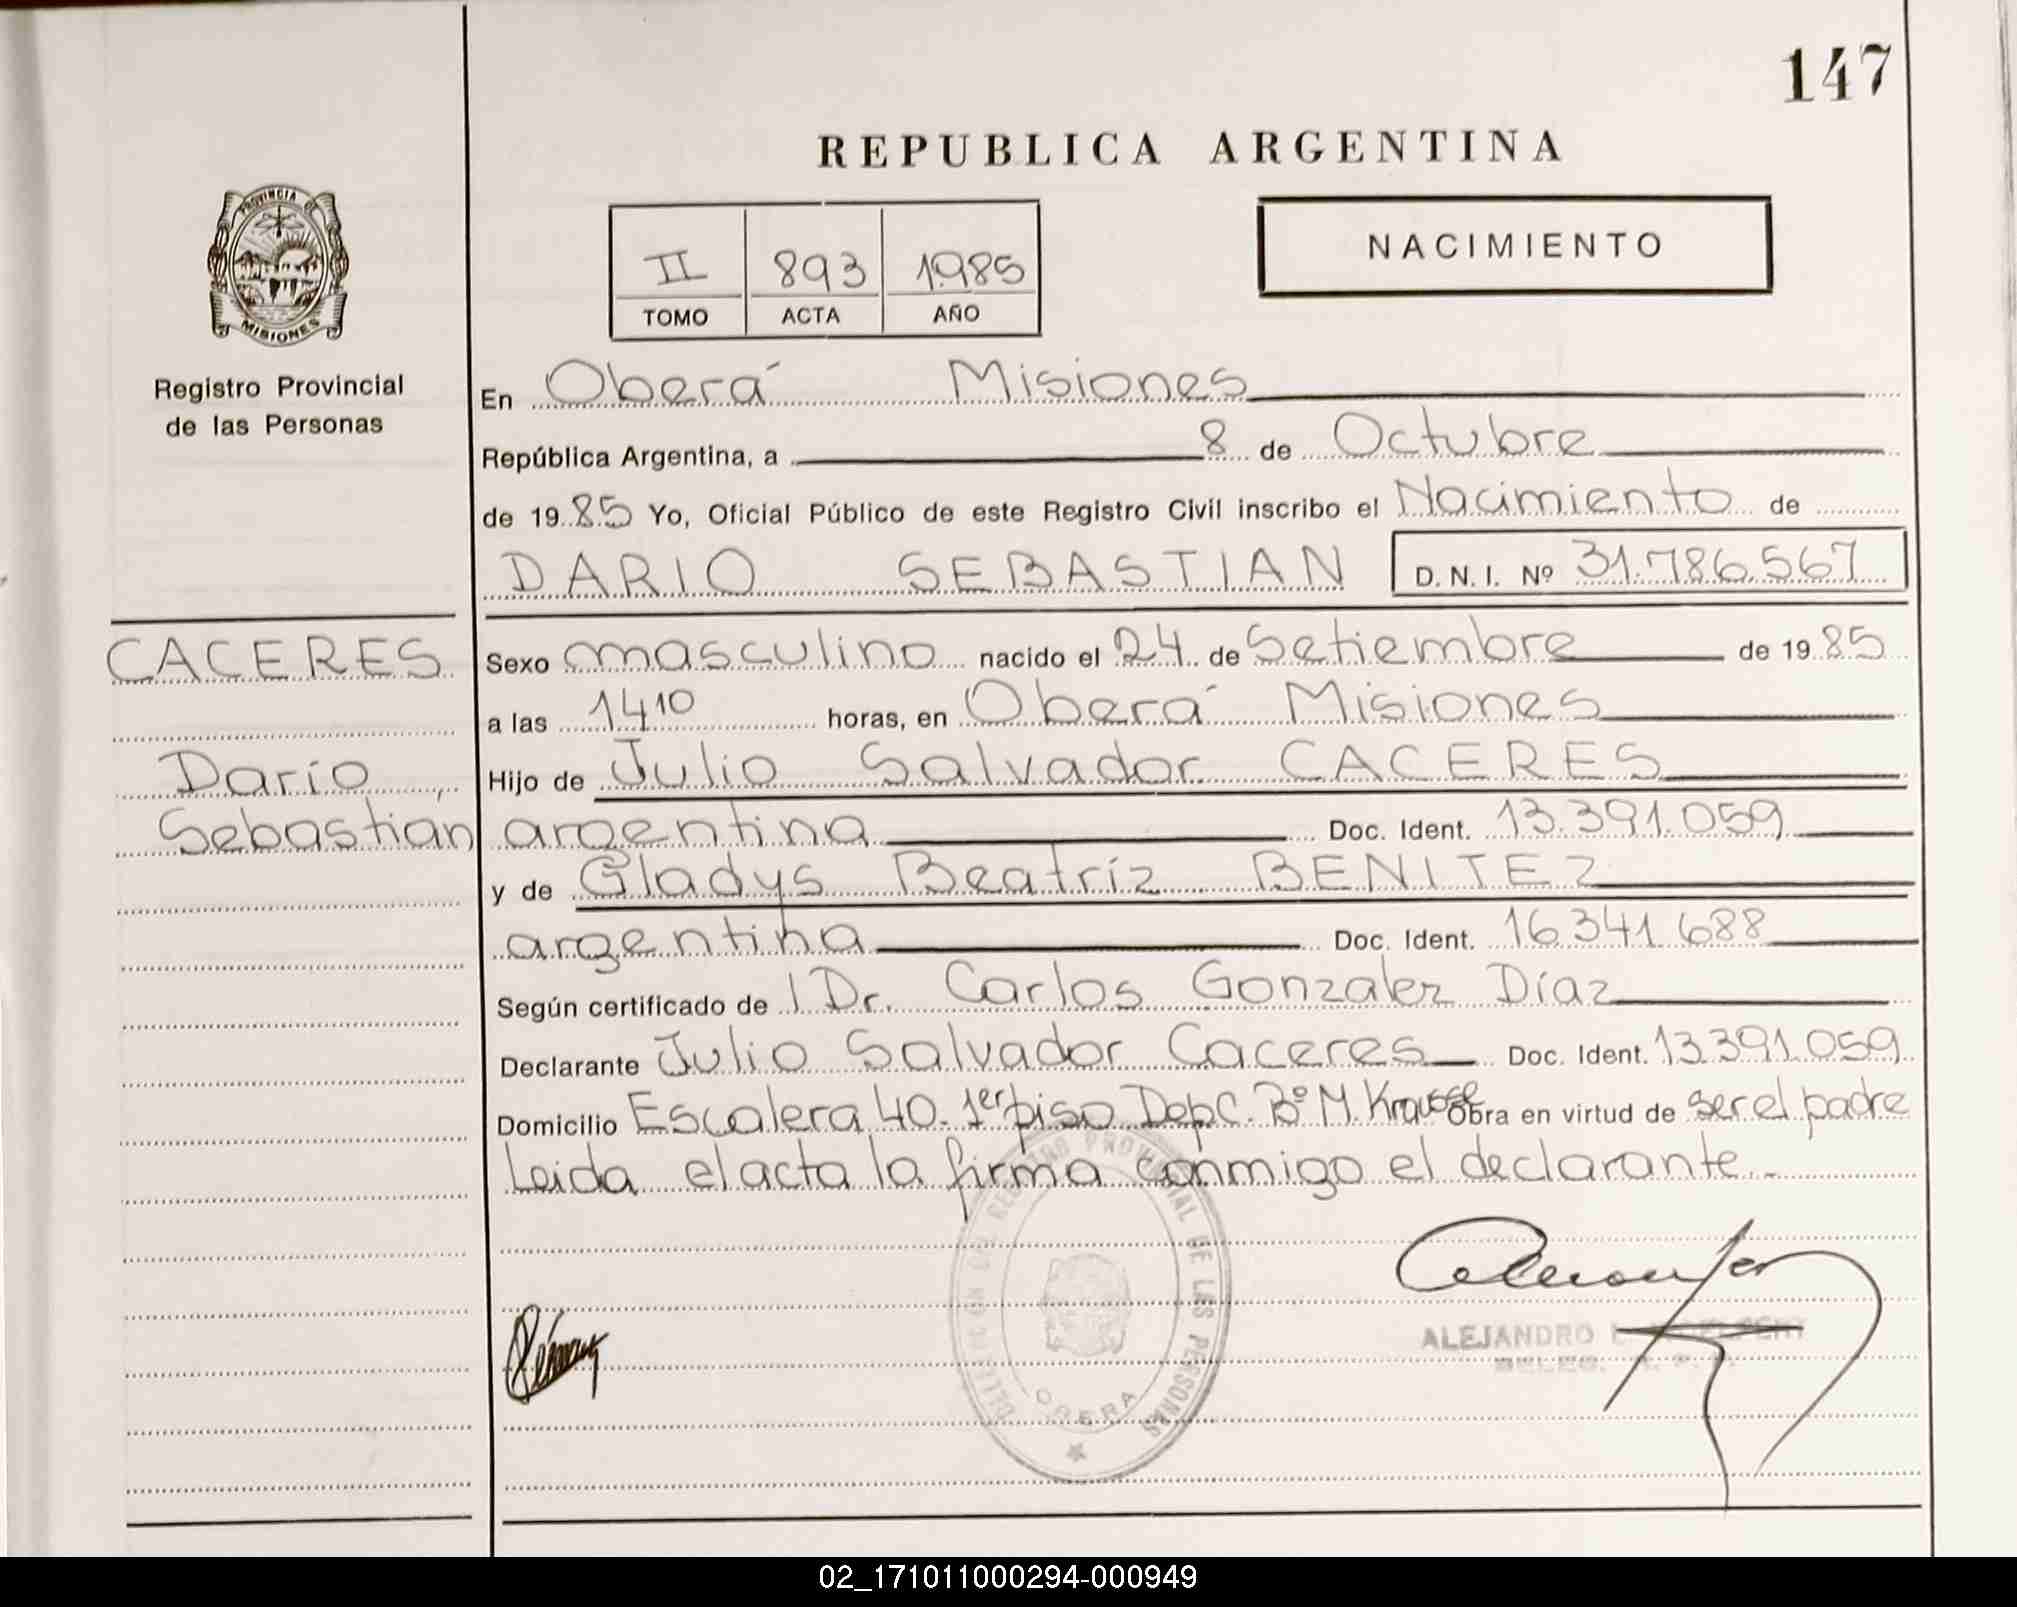 147
REPUBLICA ARGENTINA
PROVINCIA DE
MISIONES
Registro Provincial
de las Personas
II 893 1985
TOMO ACTA AÑO
NACIMIENTO
En Oberá Misiones
República Argentina, a 8 de Octubre
de 1985 Yo, Oficial Público de este Registro Civil inscribo el Nacimiento de
DARIO SEBASTIAN D. N. I. Nº 31.786.567
CACERES
Dario,
Sebastian
Sexo masculino nacido el 24 de Setiembre de 1985
a las 14 10 horas, en Oberá Misiones
Hijo de Julio Salvador CACERES
argentina Doc. Ident. 13.391.059
y de Gladys Beatríz BENITEZ
argentina Doc. Ident. 16.341.688
Según certificado de Dr. Carlos Gonzalez Díaz
Declarante Julio Salvador Caceres Doc. Ident. 13.391.059
Domicilio Escalera 40. 1er piso Dep C. Bº M. Krausse Obra en virtud de ser el padre
Leida el acta la firma conmigo el declarante.-
REGISTRO PROVINCIAL DE LAS PERSONAS
OBERA
ALEJANDRO
02_171011000294-000949